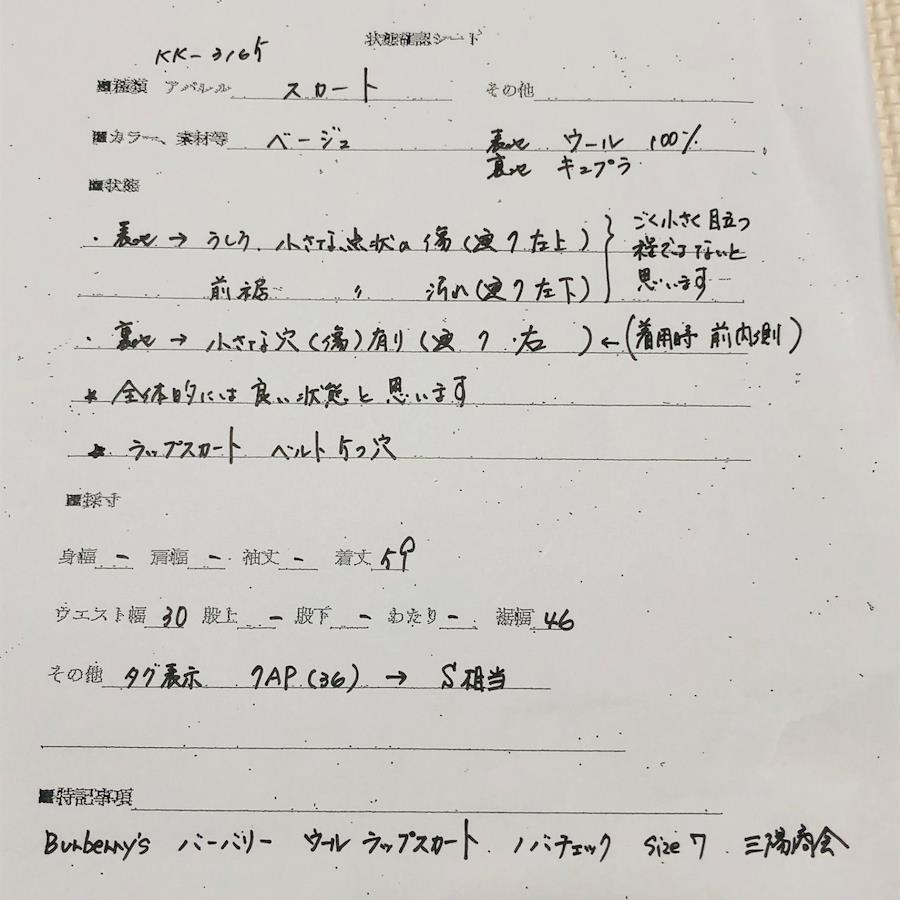 状態確認シート
KK-3165
■種類 アパレル スカート その他
■カラー、素材等 ベージュ 表地 ウール 100%
裏地 キュプラ
■状態
・表地 → うしろ、小さな点状の傷(画7左上)
前裾 〃 汚れ(画7左下)
ごく小さく目立つ
程ではないと
思います
・裏地 → 小さな穴(傷)有り(画7・右)←(着用時 前内側)
* 全体的には良い状態と思います
* ラップスカート ベルト5つ穴
■採寸
身幅 - 肩幅 - 袖丈 - 着丈 59
ウエスト幅 30 股上 - 股下 - わたり - 裾幅 46
その他 タグ表示 7AP(36) → S相当
■特記事項
Burberry's バーバリー ウール ラップスカート ノバチェック size7 三陽商会